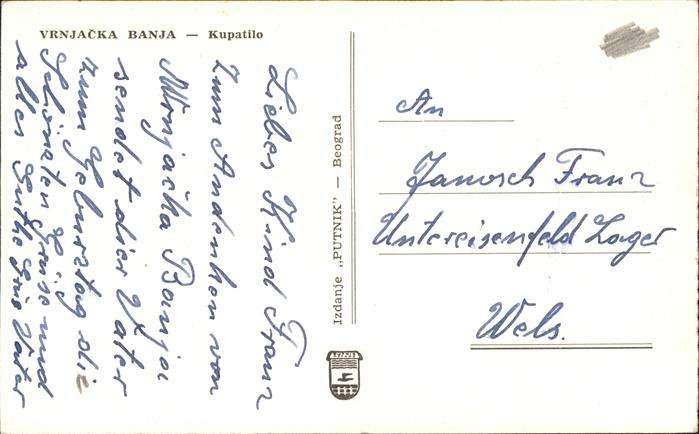 VRNJAČKA BANJA — Kupatilo
Liebes Kind Franz
zum Andenken von
Wrnjačka Banja
sendet dier Vater
zum Geburztag die
Schönsten Grüse und
alles Guthe Grus Vater
Izdanje „PUTNIK” — Beograd
An
Janosch Franz
Untereisenfeld Lager
Wels.